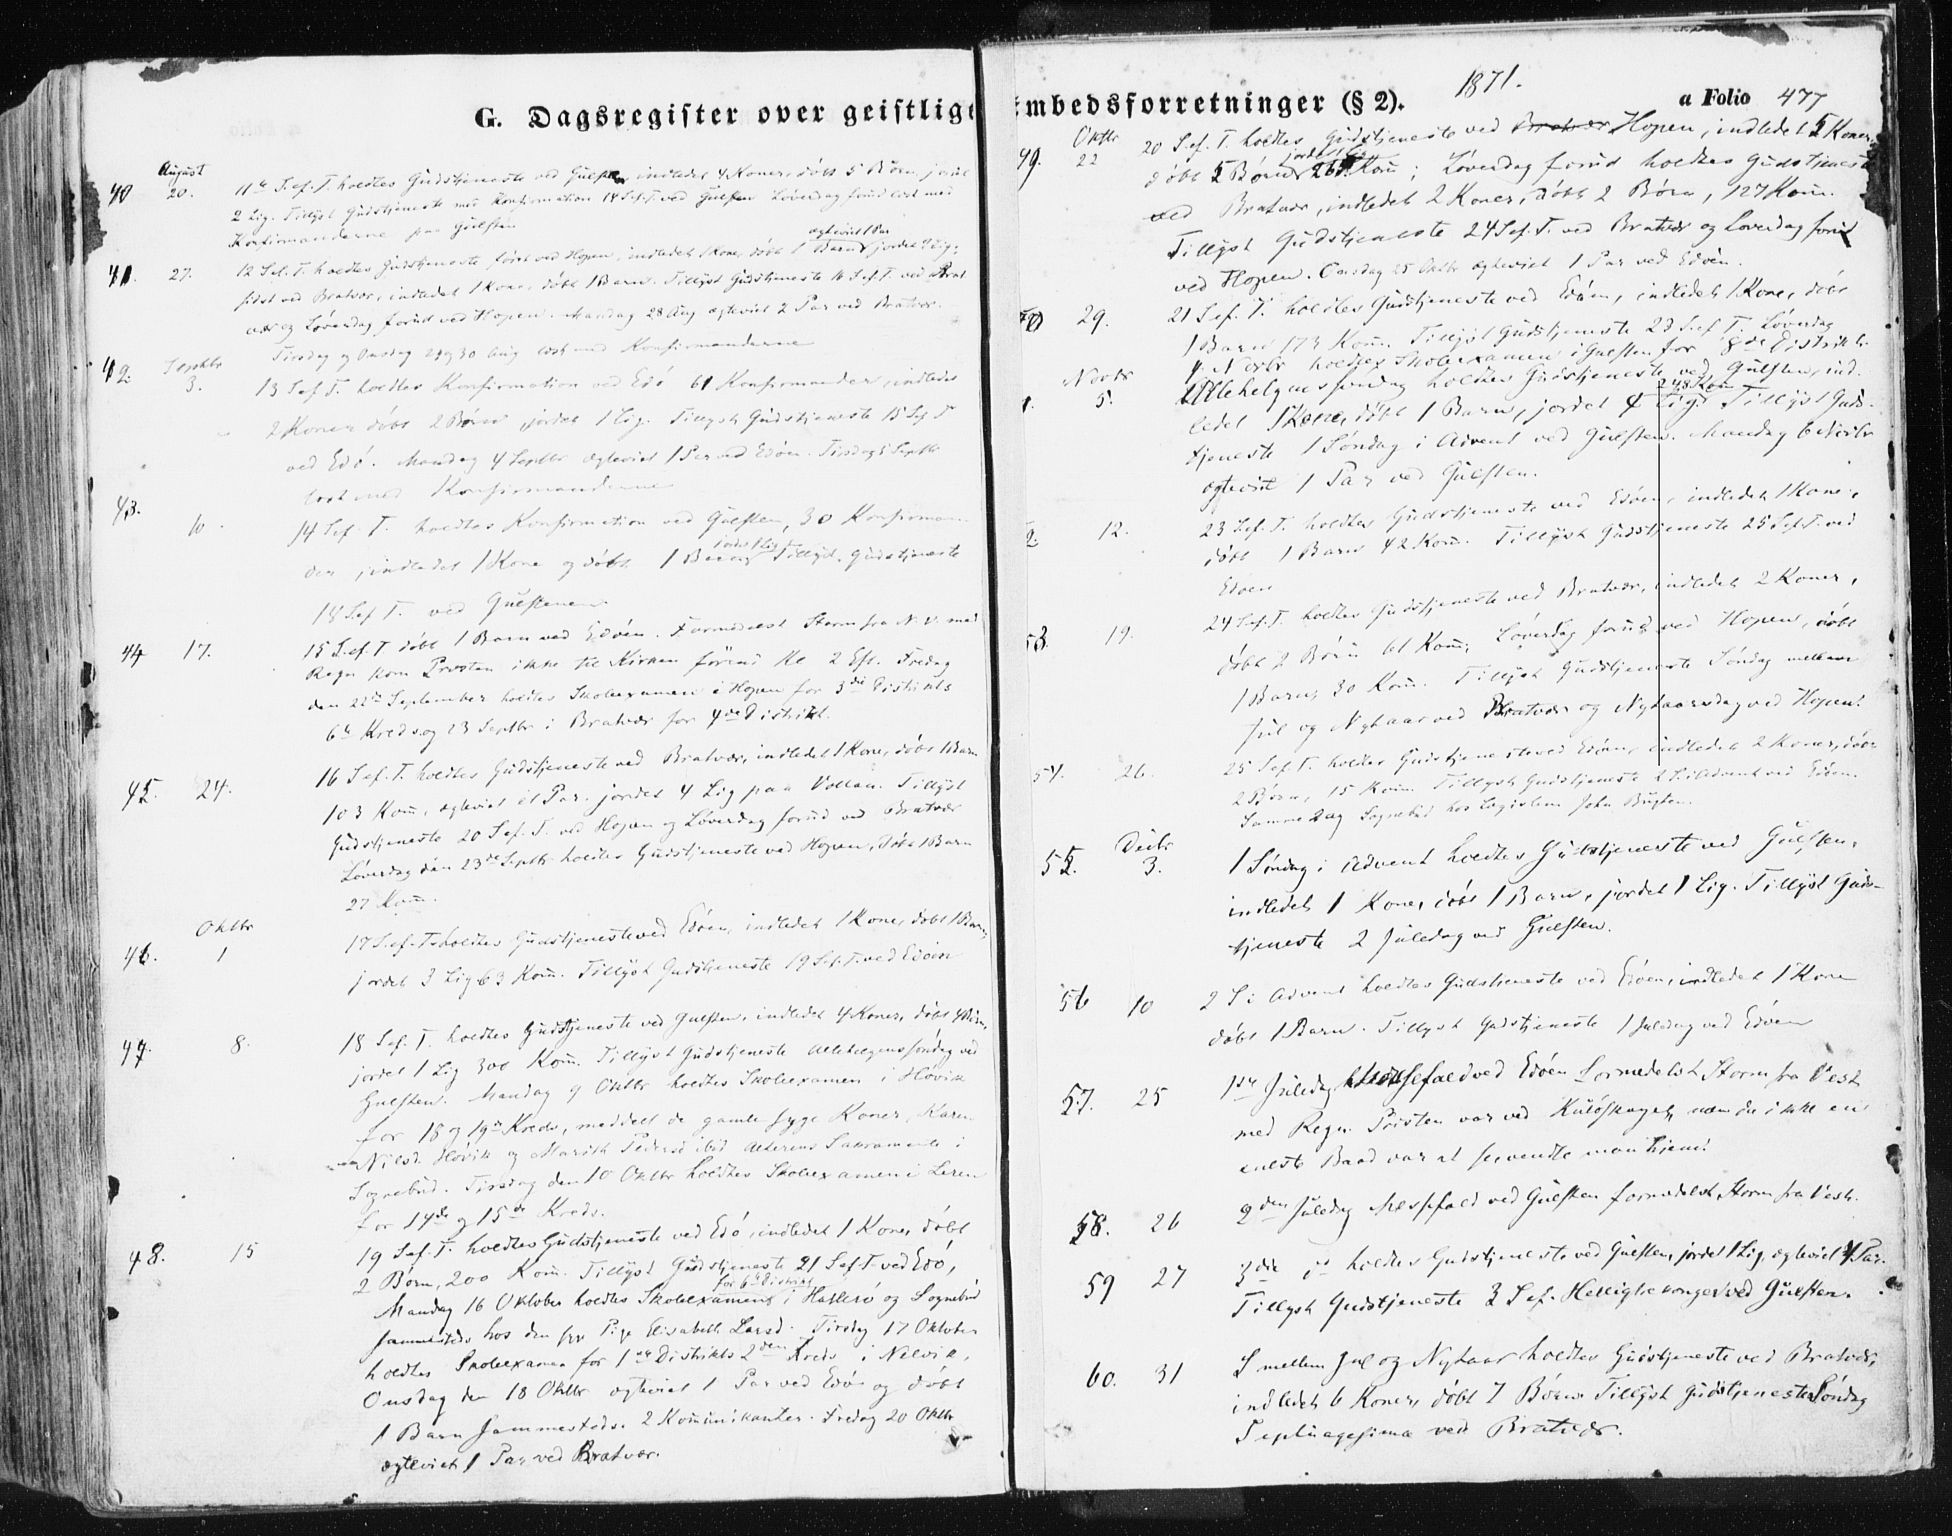 G. Dagsregister over geistlige
Embedsforretninger (§ 2).
1871.
a Folio 477
August
40 20. 11te S. ef. T. holdtes Gudstjeneste ved Gulsten, indledet 4 Koner, døbt 5 Børn, jordet
2 Lig. Tillyst Gudstjeneste med Konfirmation 14 S. ef. T. ved Gulsten Løverdag forud læst med
Konfirmanderne paa Gulsten
41. 27. 12 S. ef. T. holdtes Gudstjeneste først ved Hopen, indledet 1 Kone, døbt 1 Barn, ægteviet 1 Par jordet 4 Lig;
sidst ved Bratvær, indledet 1 Kone, døbt 1 Barn. Tillyst Gudstjeneste 16 S. ef. T. ved Brat
vær og Løverdag forud ved Hopen. Mandag 28 Aug ægteviet 2 Par ved Bratvær.
Tirsdag og Onsdag 29 og 30 Aug læst med Konfirmanderne
42. Septbr 3. 13 S. ef. T. holdtes Konfirmation ved Edø 61 Konfirmander, indledet
2 Koner døbt 2 Børn, jordet 1 Lig. Tillyst Gudstjeneste 15 S. ef. T
ved Edø. Mandag 4 Septbr ægteviet 1 Par ved Edøen. Tirsdag 5 Septbr
læst med Konfirmanderne
43. 10. 14 S. ef. T. holdtes Konfirmation ved Gulsten, 30 Konfirman-
der, indledet 1 Kone og døbt 1 Barn, jordet 1 Lig Tillyst Gudstjeneste
18 S. ef. T. ved Gulstenen
44 17. 15 S. ef. T døbt 1 Barn ved Edøen. Formedelst Storm fra N. V. med
Regn kom Provsten ikke til Kirken førend Kl 2 Eft. Fredag
den 22de September holdtes Skoleexamen i Hopen for 3die Distrikts
6te Kreds og 23 Septbr i Bratvær for 4de Distrikt.
45. 24. 16 S. ef. T. holdtes Gudstjeneste ved Bratvær, indledet 1 Kone, døbt 1 Barn
103 Kom, ægteviet et Par. jordet 4 Lig paa Vollan. Tillyst
Gudstjeneste 20 S. ef. T. ved Hopen og Løverdag forud ved Bratvær
Løverdag den 23de Septbr holdtes Gudstjeneste ved Hopen, døbt 1 Barn
27 Kom.
Oktbr
46. 1 17 S. ef. T. holdtes Gudstjeneste ved Edøen, indledet 1 Kone, døbt 1 Barn,
jordet 3 Lig 63 Kom. Tillyst Gudstjeneste 19 S. ef. T. ved Edøen
47. 8. 18 S. ef. T. holdtes Gudstjeneste ved Gulsten, indledet 4 Koner, døbt 4 Børn,
jordet 1 Lig 300 Kom. Tillyst Gudstjeneste Allehelgenssøndag ved
Gulsten. Mandag 9 Oktbr holdtes Skoleexamen i Høvik
for 18 og 19de Kreds, meddelt de gamle syge Koner, Karen
Nilsd. Høvik og Marith Pedersd ibid Alterens Sakramente i
Sognebud. Tirsdag den 10 Oktbr holdtes Skoleexamen i Leren
for 14de og 15de Kreds.
48. 15 19 S. ef. T. holdtes Gudstjeneste ved Edø, indledet 1 Kone, døbt
2 Børn, 200 Kom. Tillyst Gudstjeneste 21 S. ef. T. ved Edø,
Mandag 16 Oktober holdtes Skoleexamen for 6te Distrikt i Hallerø og Sognebud
sammesteds hos den syge Pige Elisabeth Larsd. Tirsdag 17 Oktober
holdtes Skoleexamen for 1ste Distrikts 2den Kreds i Nelvik,
Onsdag den 18 Oktbr ægteviet 1 Par ved Edø og døbt
1 Barn sammesteds. 2 Kommunikanter. Fredag 20 Oktbr
ægteviet 1 Par ved Bratvær.
Oktbr
49. 22 20 S. ef. T. holdtes Gudstjeneste ved Bratvær Hopen, indledet 5 Koner,
døbt 5 Børn, jordet 1 Lig Kom; Løverdag forud holdtes Gudstjeneste
ved Bratvær, indledet 2 Koner, døbt 2 Børn, 127 Kom.
Tillyst Gudstjeneste 24 S. ef. T. ved Bratvær og Løverdag forud
ved Hopen. Onsdag 25 Oktbr ægteviet 1 Par ved Edøen.
50 29. 21 S. ef. T. holdtes Gudstjeneste ved Edøen, indledet 1 Kone, døbt
1 Barn 173 Kom. Tillyst Gudstjeneste 23 S. ef. T. Løverdag
4 Novbr holdtes Skoleexamen i Gulsten for 8de Distrikt.
Novbr
1. 5. Allehelgenssøndag holdtes Gudstjeneste ved Gulsten, ind-
ledet 1 Kone, døbt 1 Barn, jordet 4 Lig, 248 Kom Tillyst Guds-
tjeneste 1 Søndag i Advent ved Gulsten. Mandag 6 Novbr
ægteviet 1 Par ved Gulsten.
2. 12. 23 S. ef. T. holdtes Gudstjeneste ved Edøen, indledet 1 Kone,
døbt 1 Barn 42 Kom. Tillyst Gudstjeneste 25 S. ef. T. ved
Edøen
53. 19. 24 S. ef. T. holdtes Gudstjeneste ved Bratvær, indledet 2 Koner,
døbt 2 Børn 61 Kom; Løverdag forud ved Hopen, døbt
1 Barn, 30 Kom. Tillyst Gudstjeneste Søndag mellem
Jul og Nytaar ved Bratvær og Nytaarsdag ved Hopen.
54. 26. 25 S. ef. T. holdtes Gudstjeneste ved Edøen, indledet 2 Koner, døbt
2 Børn, 15 Kom. Tillyst Gudstjeneste 2 S. i Advent ved Edøen.
Samme Dag Sognebud hos Logislem John
55. Decbr 3. 1 Søndag i Advent holdtes Gudstjeneste ved Gulsten,
indledet 1 Kone, døbt 1 Barn, jordet 1 Lig. Tillyst Guds-
tjeneste 2 Juledag ved Gulsten.
56 10 2 S i Advent holdtes Gudstjeneste ved Edøen, indledet 1 Kone
døbt 1 Barn. Tillyst Gudstjeneste 1 Juledag ved Edøen
57. 25 1ste Juledag Messefald ved Edøen formedelst Storm fra Vest
med Regn. Provsten var ved Kuløskaget, men da ikke en
eneste Baad var at se, vendte man hjem.
58. 26 2den Juledag Messefald ved Gulsten formedelst Storm fra Vest.
59 27 3die holdtes Gudstjeneste ved Gulsten, jordet 1 Lig, ægteviet 4 Par.
Tillyst Gudstjeneste 3 S. ef. Hellig tre konger ved Gulsten.
60. 31 S mellem Jul og Nytaar holdtes Gudstjeneste ved Bratvær,
indledet 6 Koner, døbt 7 Børn. Tillyst Gudstjeneste Søndag
Septuagesima ved Bratvær.